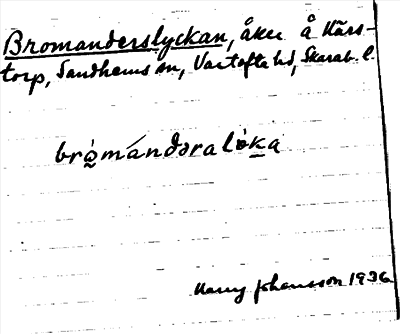 Bromanderslyckan, åker å Kårs-
torp, Sandhems sn, Vartofta hd, Skarab. l.
bròmándəralòka
Harry Johansson 1936